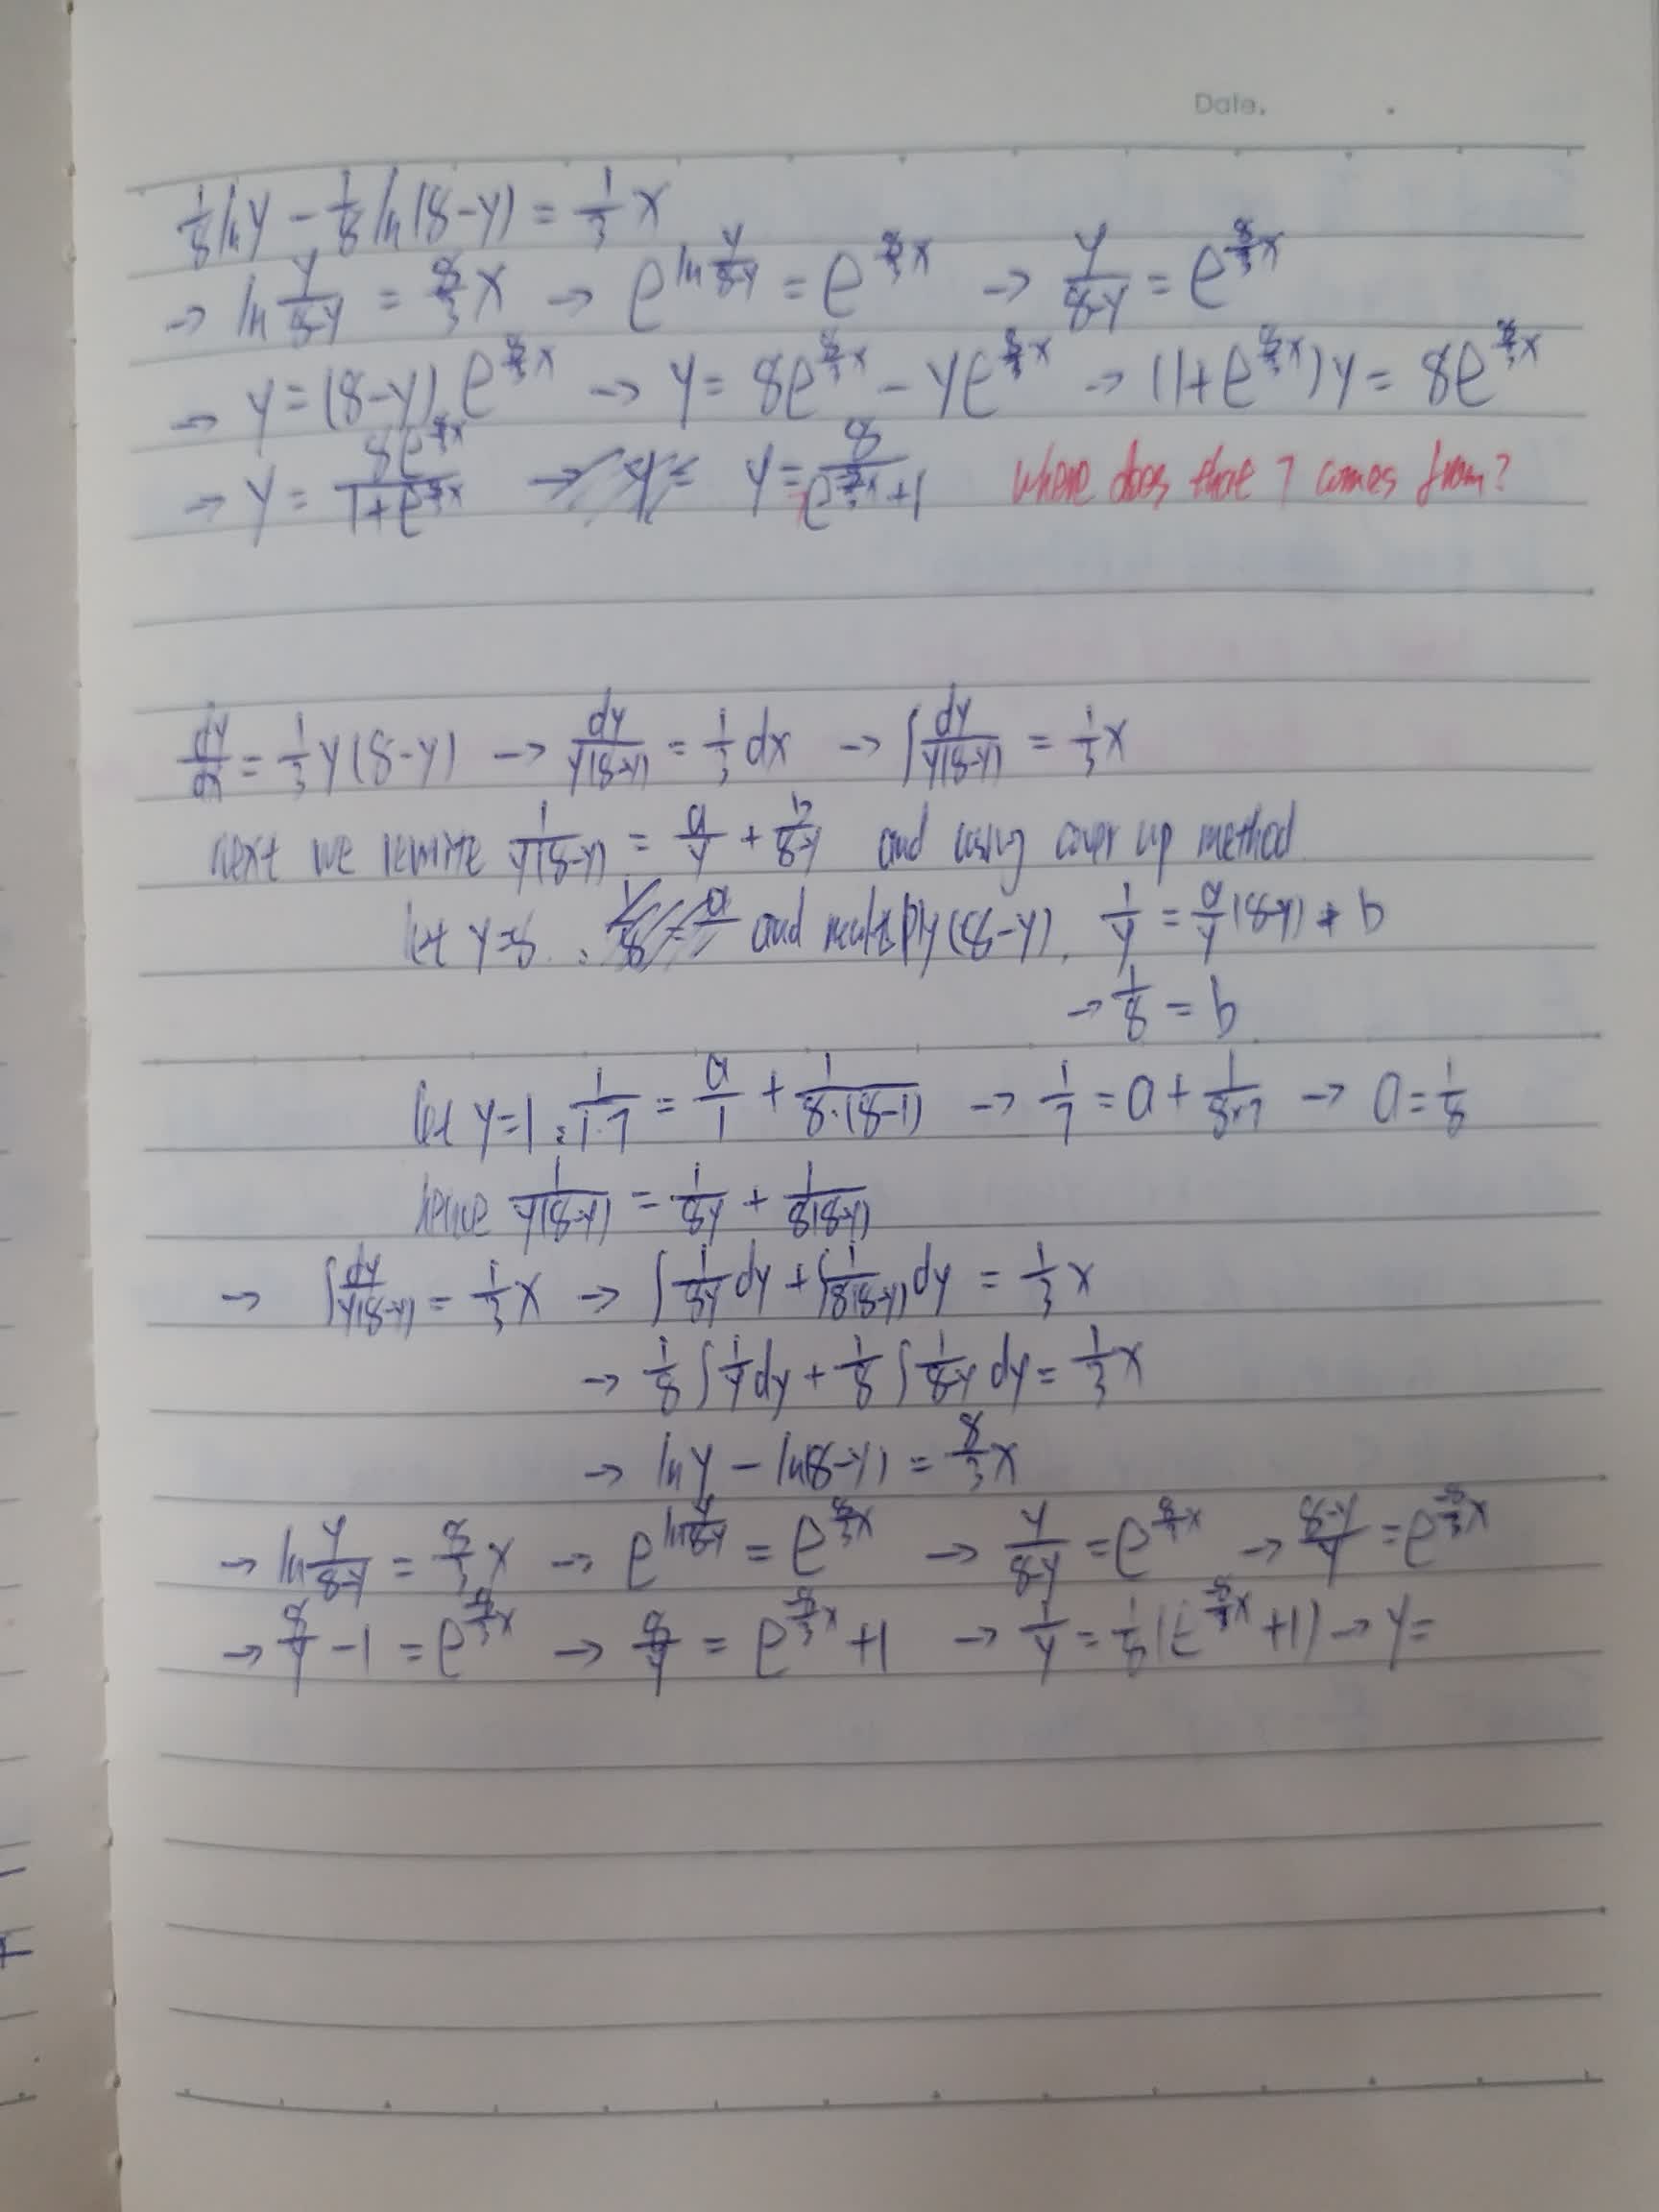 Date. .
1/8 ln y − 1/8 ln(8−y) = 1/3 x
→ ln y/(8−y) = 8/3 x → e^(ln y/(8−y)) = e^(8/3 x) → y/(8−y) = e^(8/3 x)
→ y = (8−y) e^(8/3 x) → y = 8e^(8/3 x) − ye^(8/3 x) → (1+e^(8/3 x))y = 8e^(8/3 x)
→ y = 8e^(8/3 x)/(1+e^(8/3 x)) → y = 8/(7e^(-8/3 x)+1) where does that 7 comes from?
dy/dx = 1/3 y(8−y) → dy/(y(8−y)) = 1/3 dx → ∫ dy/(y(8−y)) = 1/3 x
next we rewrite 1/(y(8−y)) = a/y + b/(8−y) and using cover up method
let y=8. and multiply (8−y), 1/y = a/y (8−y) + b
→ 1/8 = b
let y=1: 1/(1·7) = a/1 + 1/(8·(8−1)) → 1/7 = a + 1/(8×7) → a = 1/8
hence 1/(y(8−y)) = 1/(8y) + 1/(8(8−y))
→ ∫ dy/(y(8−y)) = 1/3 x → ∫ 1/(8y) dy + ∫ 1/(8(8−y)) dy = 1/3 x
→ 1/8 ∫ 1/y dy + 1/8 ∫ 1/(8−y) dy = 1/3 x
→ ln y − ln(8−y) = 8/3 x
→ ln y/(8−y) = 8/3 x → e^(ln y/(8−y)) = e^(8/3 x) → y/(8−y) = e^(8/3 x) → (8−y)/y = e^(-8/3 x)
→ 8/y − 1 = e^(-8/3 x) → 8/y = e^(-8/3 x) + 1 → 1/y = 1/8 (e^(-8/3 x) + 1) → y =